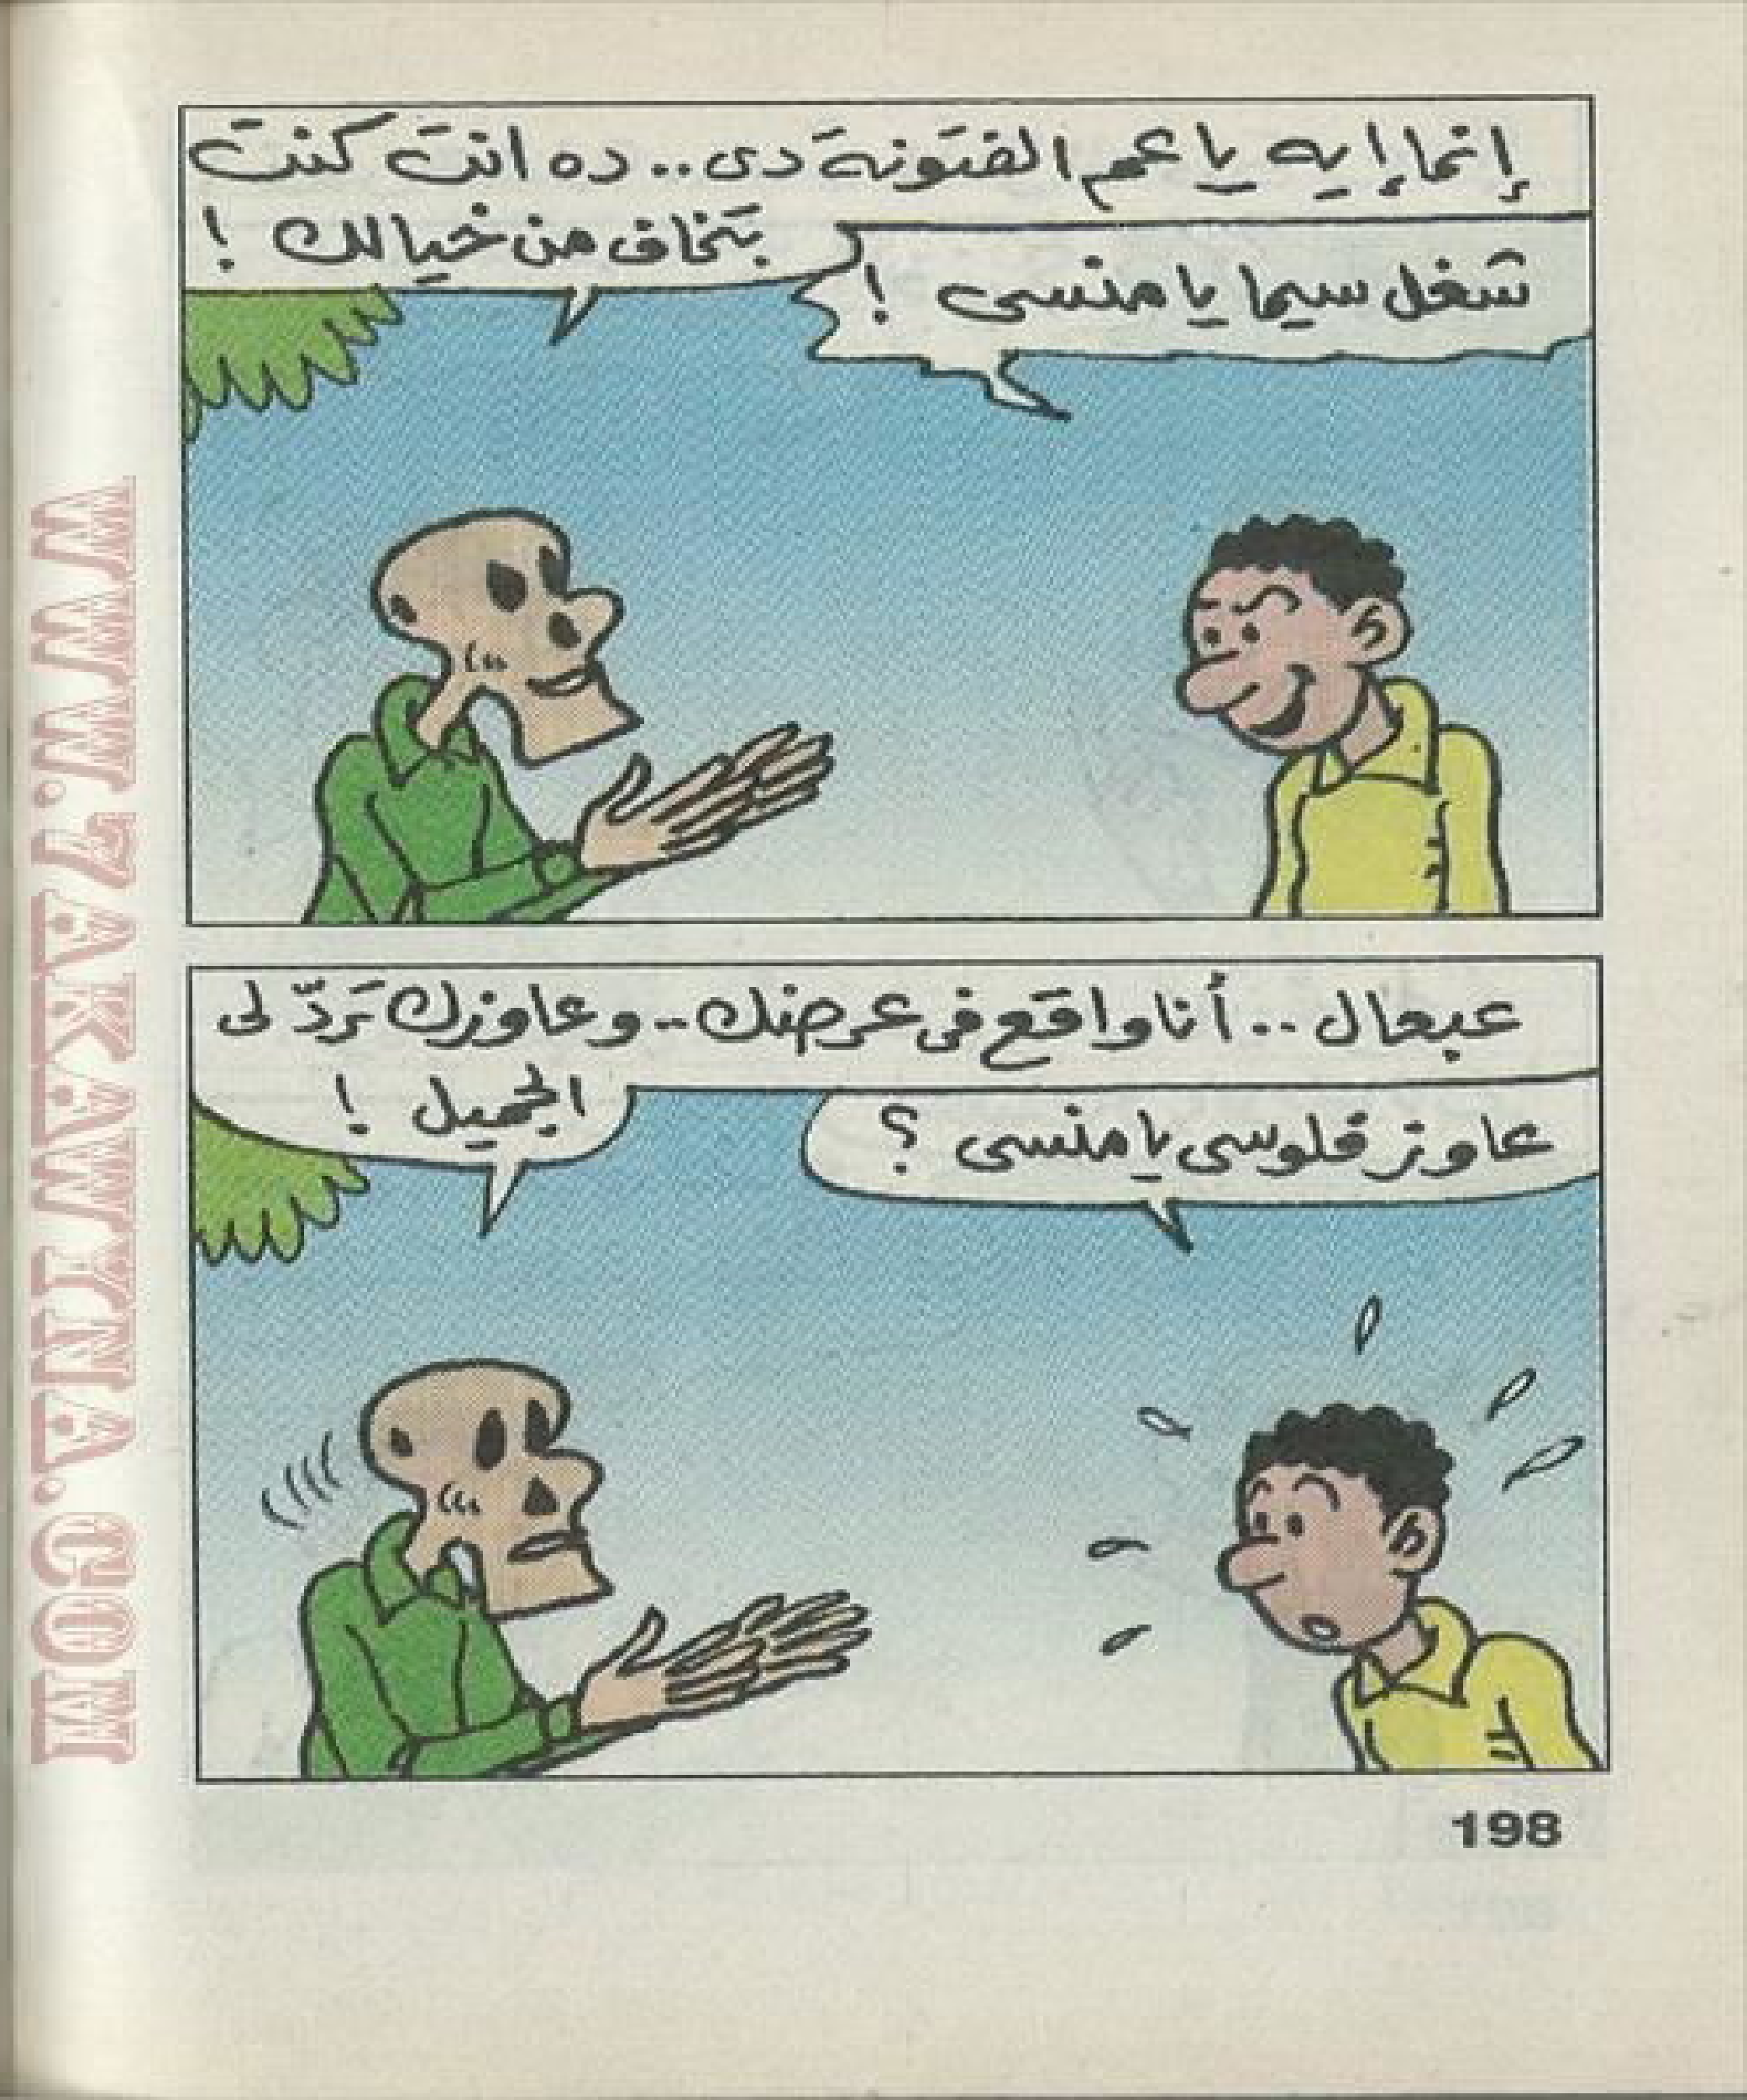 إنما إيه يا عم الفتونة دى.. ده انت كنت
بتخاف من خيالك !
شغل سيما يا منسى !
عبعال.. أنا واقع فى عرضك.. وعاوزك تَردّ لى
الجميل !
عاوز فلوسى يا منسى ؟
198
WWW.7AKAWINA.COM